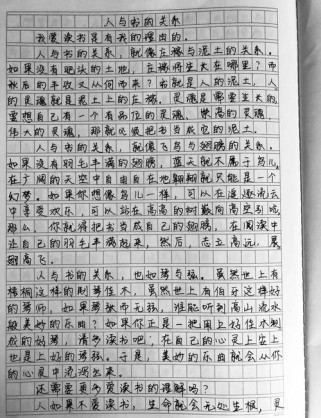 人与书的关系
我爱读书是有我的理由的。
人与书的关系，就像庄稼与泥土的关系。
如果没有肥沃的土地，庄稼将生长在哪里？而
秋后的丰收又从何而来？书就是人的泥土，人
的灵魂就是泥土上的庄稼。灵魂是需要生长的，
要想自己有一个有品位的灵魂、崇高的灵魂、
伟大的灵魂，那就必须把书当成它的泥土。
人与书的关系，就像飞鸟与翅膀的关系。
如果没有羽毛丰满的翅膀，蓝天就不属于鸟儿，
在广阔的天空中自由自在地翱翔就只能是一个
幻梦。如果你想像鸟儿一样，可以在逍遥流云
中享受欢乐，可以站在高高的树巅向高空引吭，
那么，你就得把书当成自己的翅膀，在阅读中
让自己的羽毛丰满起来，然后，志立高远，展
翅高飞。
人与书的关系，也如琴与弦。虽然世上有
梧桐这样的制琴佳木，虽然世上有伯牙这样好
的琴师，如果琴张而无弦，谁能听到高山流水
般美妙的乐曲？如果你正是一把用上好佳木制
成的好琴，请多读书吧，在自己的心灵上安上
也是上好的琴弦。于是，美妙的乐曲就会从你
的心灵中流淌出来。
还需要更多爱读书的理解吗？
人如果不爱读书，生命就会无处生根，灵